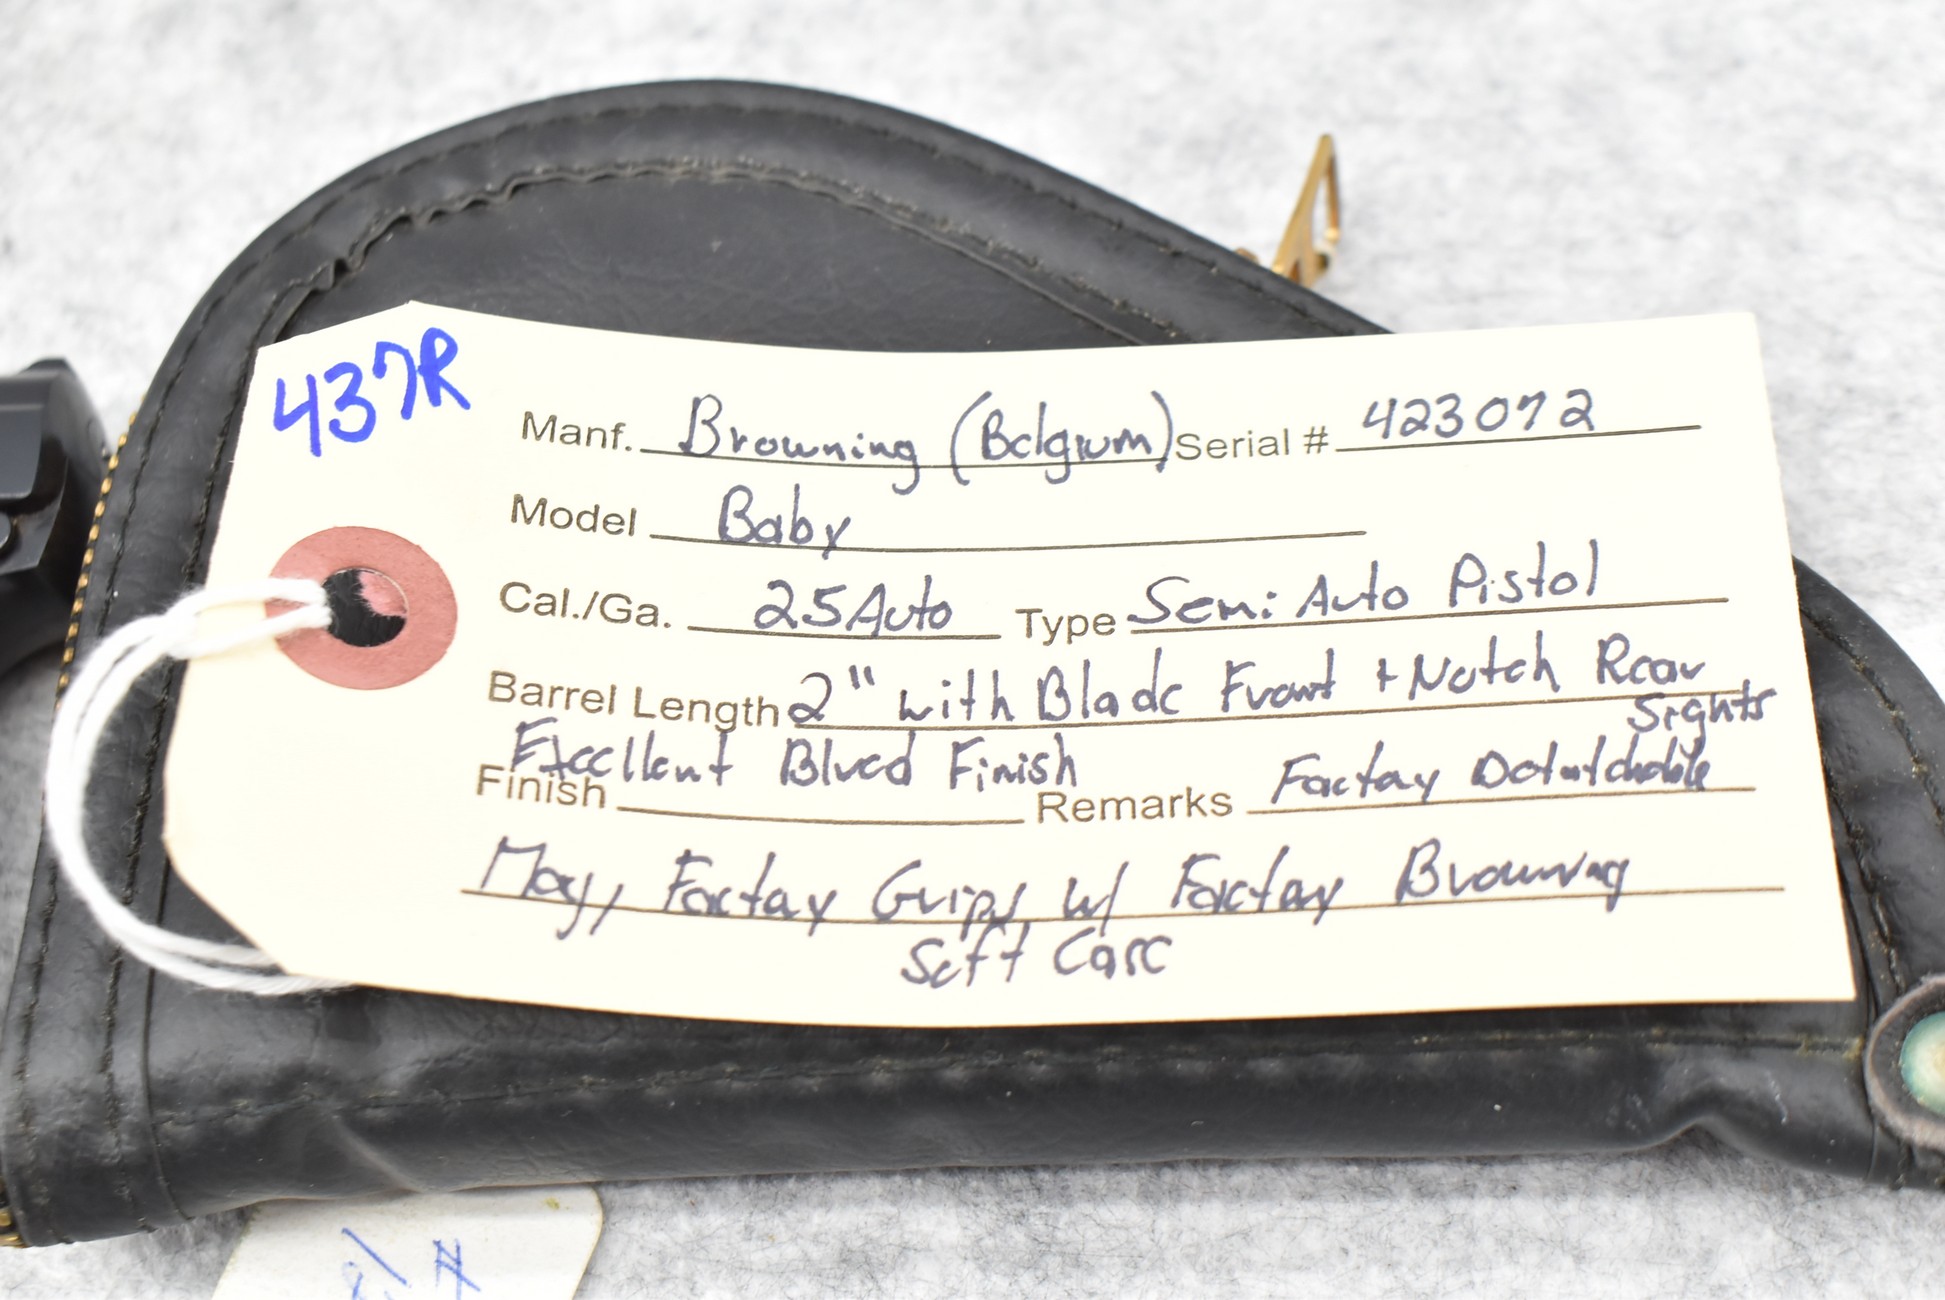 437R
Manf. Browning (Belgium) Serial # 423072
Model Baby
Cal./Ga. 25 Auto Type Semi Auto Pistol
Barrel Length 2" with Blade Front + Notch Rear
Sights
Excellent Blued Finish
Finish Remarks Factory Detatchable
Mag, Factory Grips w/ Factory Browning
Soft Case